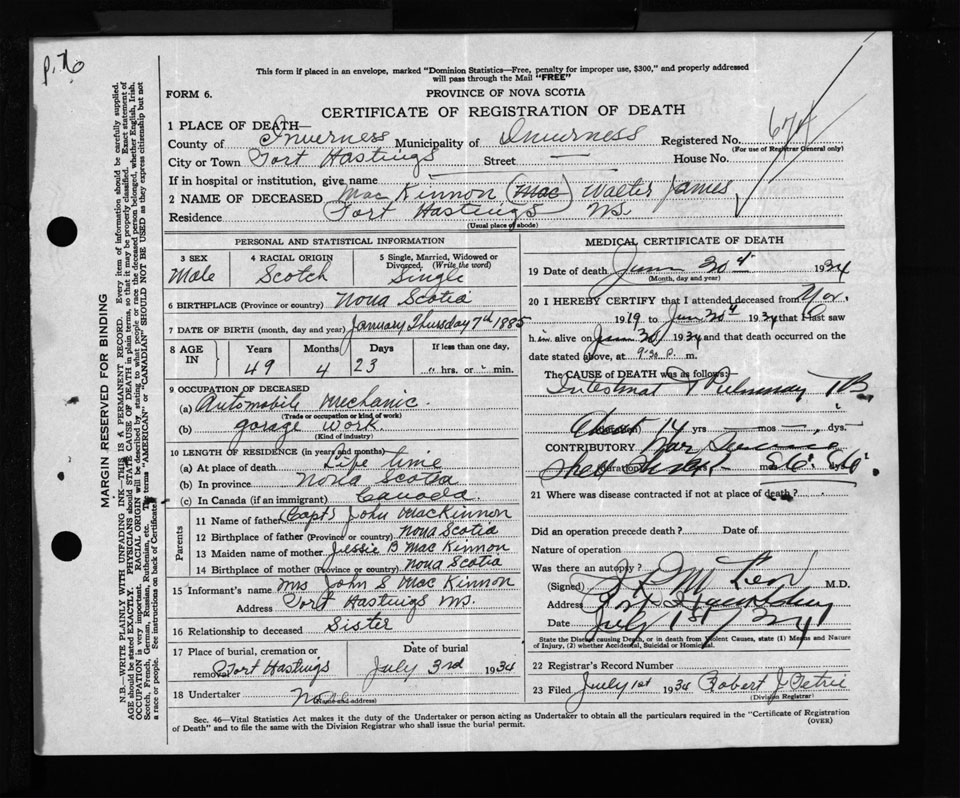 P. 76
This form if placed in an envelope, marked "Dominion Statistics—Free, penalty for improper use, $300," and properly addressed
will pass through the Mail "FREE"
FORM 6.
PROVINCE OF NOVA SCOTIA
CERTIFICATE OF REGISTRATION OF DEATH
1 PLACE OF DEATH—
County of Inverness Municipality of Inverness Registered No.
(For use of Registrar General only)
City or Town Port Hastings Street — House No.
If in hospital or institution, give name
2 NAME OF DECEASED MacKinnon (Mac) Walter James
Residence Port Hastings NS.
(Usual place of abode)
PERSONAL AND STATISTICAL INFORMATION
3 SEX 4 RACIAL ORIGIN 5 Single, Married, Widowed or
Divorced. (Write the word)
Male Scotch Single
6 BIRTHPLACE (Province or country) Nova Scotia
7 DATE OF BIRTH (month, day and year) January Thursday 7th 1885
8 AGE IN Years Months Days If less than one day,
49 4 23 hrs. or min.
9 OCCUPATION OF DECEASED
(a) Automobile Mechanic.
(Trade or occupation or kind of work)
(b) garage work.
(Kind of industry)
10 LENGTH OF RESIDENCE (in years and months)
(a) At place of death Life time
(b) In province Nova Scotia
(c) In Canada (if an immigrant) Canada.
Parents
11 Name of father (Capt) John MacKinnon
12 Birthplace of father (Province or country) Nova Scotia
13 Maiden name of mother Jessie B MacKinnon
14 Birthplace of mother (Province or country) Nova Scotia
15 Informant's name Mrs John S MacKinnon
Address Port Hastings NS.
16 Relationship to deceased Sister
17 Place of burial, cremation or Date of burial
removal Port Hastings July 3rd 1934
18 Undertaker None
(Name and address)
MEDICAL CERTIFICATE OF DEATH
19 Date of death June 30th 1934
(Month, day and year)
20 I HEREBY CERTIFY that I attended deceased from Nov.
1919 to June 30th 1934 that I last saw
him alive on June 30 1934 and that death occurred on the
date stated above, at 9.30 P. m.
The CAUSE OF DEATH was as follows:—
Intestinal + Pulmonary TB
About 14 yrs mos. dys.
CONTRIBUTORY War Service
Shell
(duration) mos. dys.
21 Where was disease contracted if not at place of death?
Did an operation precede death? Date of
Nature of operation
Was there an autopsy?
(Signed) M.D.
Address Port Hawkesbury
Date July 1st / 34
State the Disease causing Death, or in death from Violent Causes, state (1) Means and Nature
of Injury, (2) whether Accidental, Suicidal or Homicidal.
22 Registrar's Record Number
23 Filed July 1st 1934 Robert J Petrie
(Division Registrar)
Sec. 46—Vital Statistics Act makes it the duty of the Undertaker or person acting as Undertaker to obtain all the particulars required in the "Certificate of Registration
of Death" and to file the same with the Division Registrar who shall issue the burial permit.
(OVER)
MARGIN RESERVED FOR BINDING
N.B.—WRITE PLAINLY WITH UNFADING INK—THIS IS A PERMANENT RECORD. Every item of information should be carefully supplied.
AGE should be stated EXACTLY. PHYSICIANS should STATE CAUSE OF DEATH in plain terms, so that it may be properly classified. Exact statement of
OCCUPATION is very important. RACIAL ORIGIN will be described by stating to what people or race the deceased person belonged, whether English, Irish,
Scotch, French, German, Russian, Ruthenian, etc. The terms "AMERICAN" or "CANADIAN" SHOULD NOT BE USED as they express citizenship but not
a race or people. See instructions on back of Certificate.